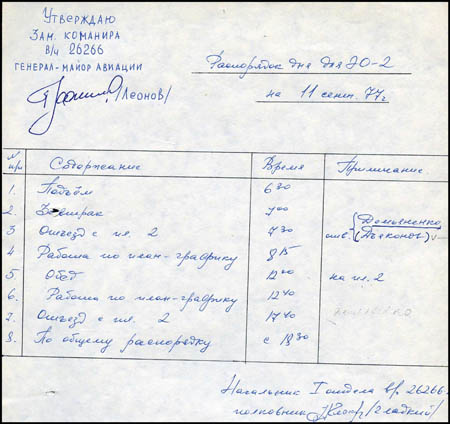 Утверждаю
Зам. командира
в/ч 26266
генерал-майор авиации
/Леонов/
Распорядок дня для ЭО-2
на 11 сент. 77г
N п/п Содержание Время Примечание
1. Подъём 6 30
2. Завтрак 7 00
3 Отъезд с пл. 2 7 30 отв. {Демьяненко (Дьяконов)
4 Работа по план-графику 8 15
5 Обед 12 00 на пл. 2
6. Работа по план-графику 12 40
7. Отъезд с пл. 2 17 40
8. По общему распорядку с 18 30
Начальник I отдела в/ч 26266
полковник /Гладкий/